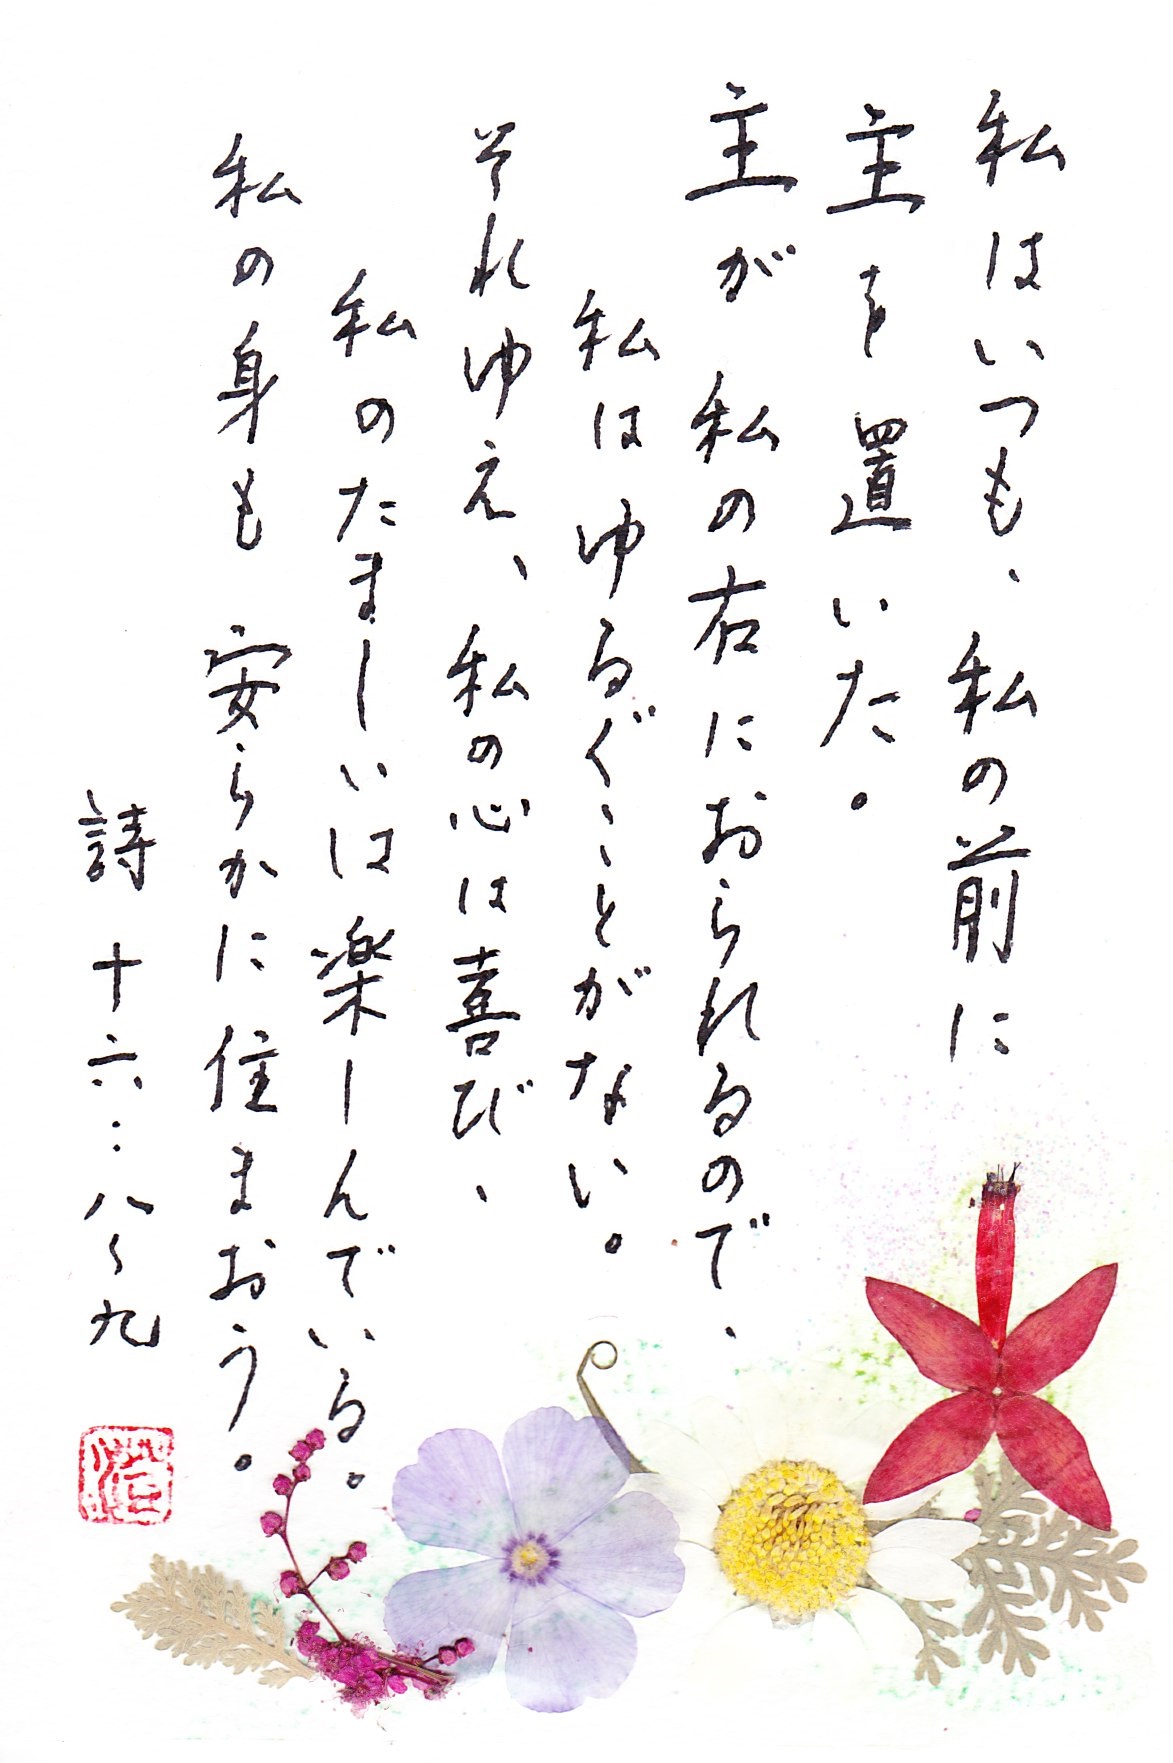 私はいつも、私の前に
主を置いた。
主が私の右におられるので、
私はゆるぐことがない。
それゆえ、私の心は喜び、
私のたましいは楽しんでいる。
私の身も安らかに住まおう。
詩十六:八〜九